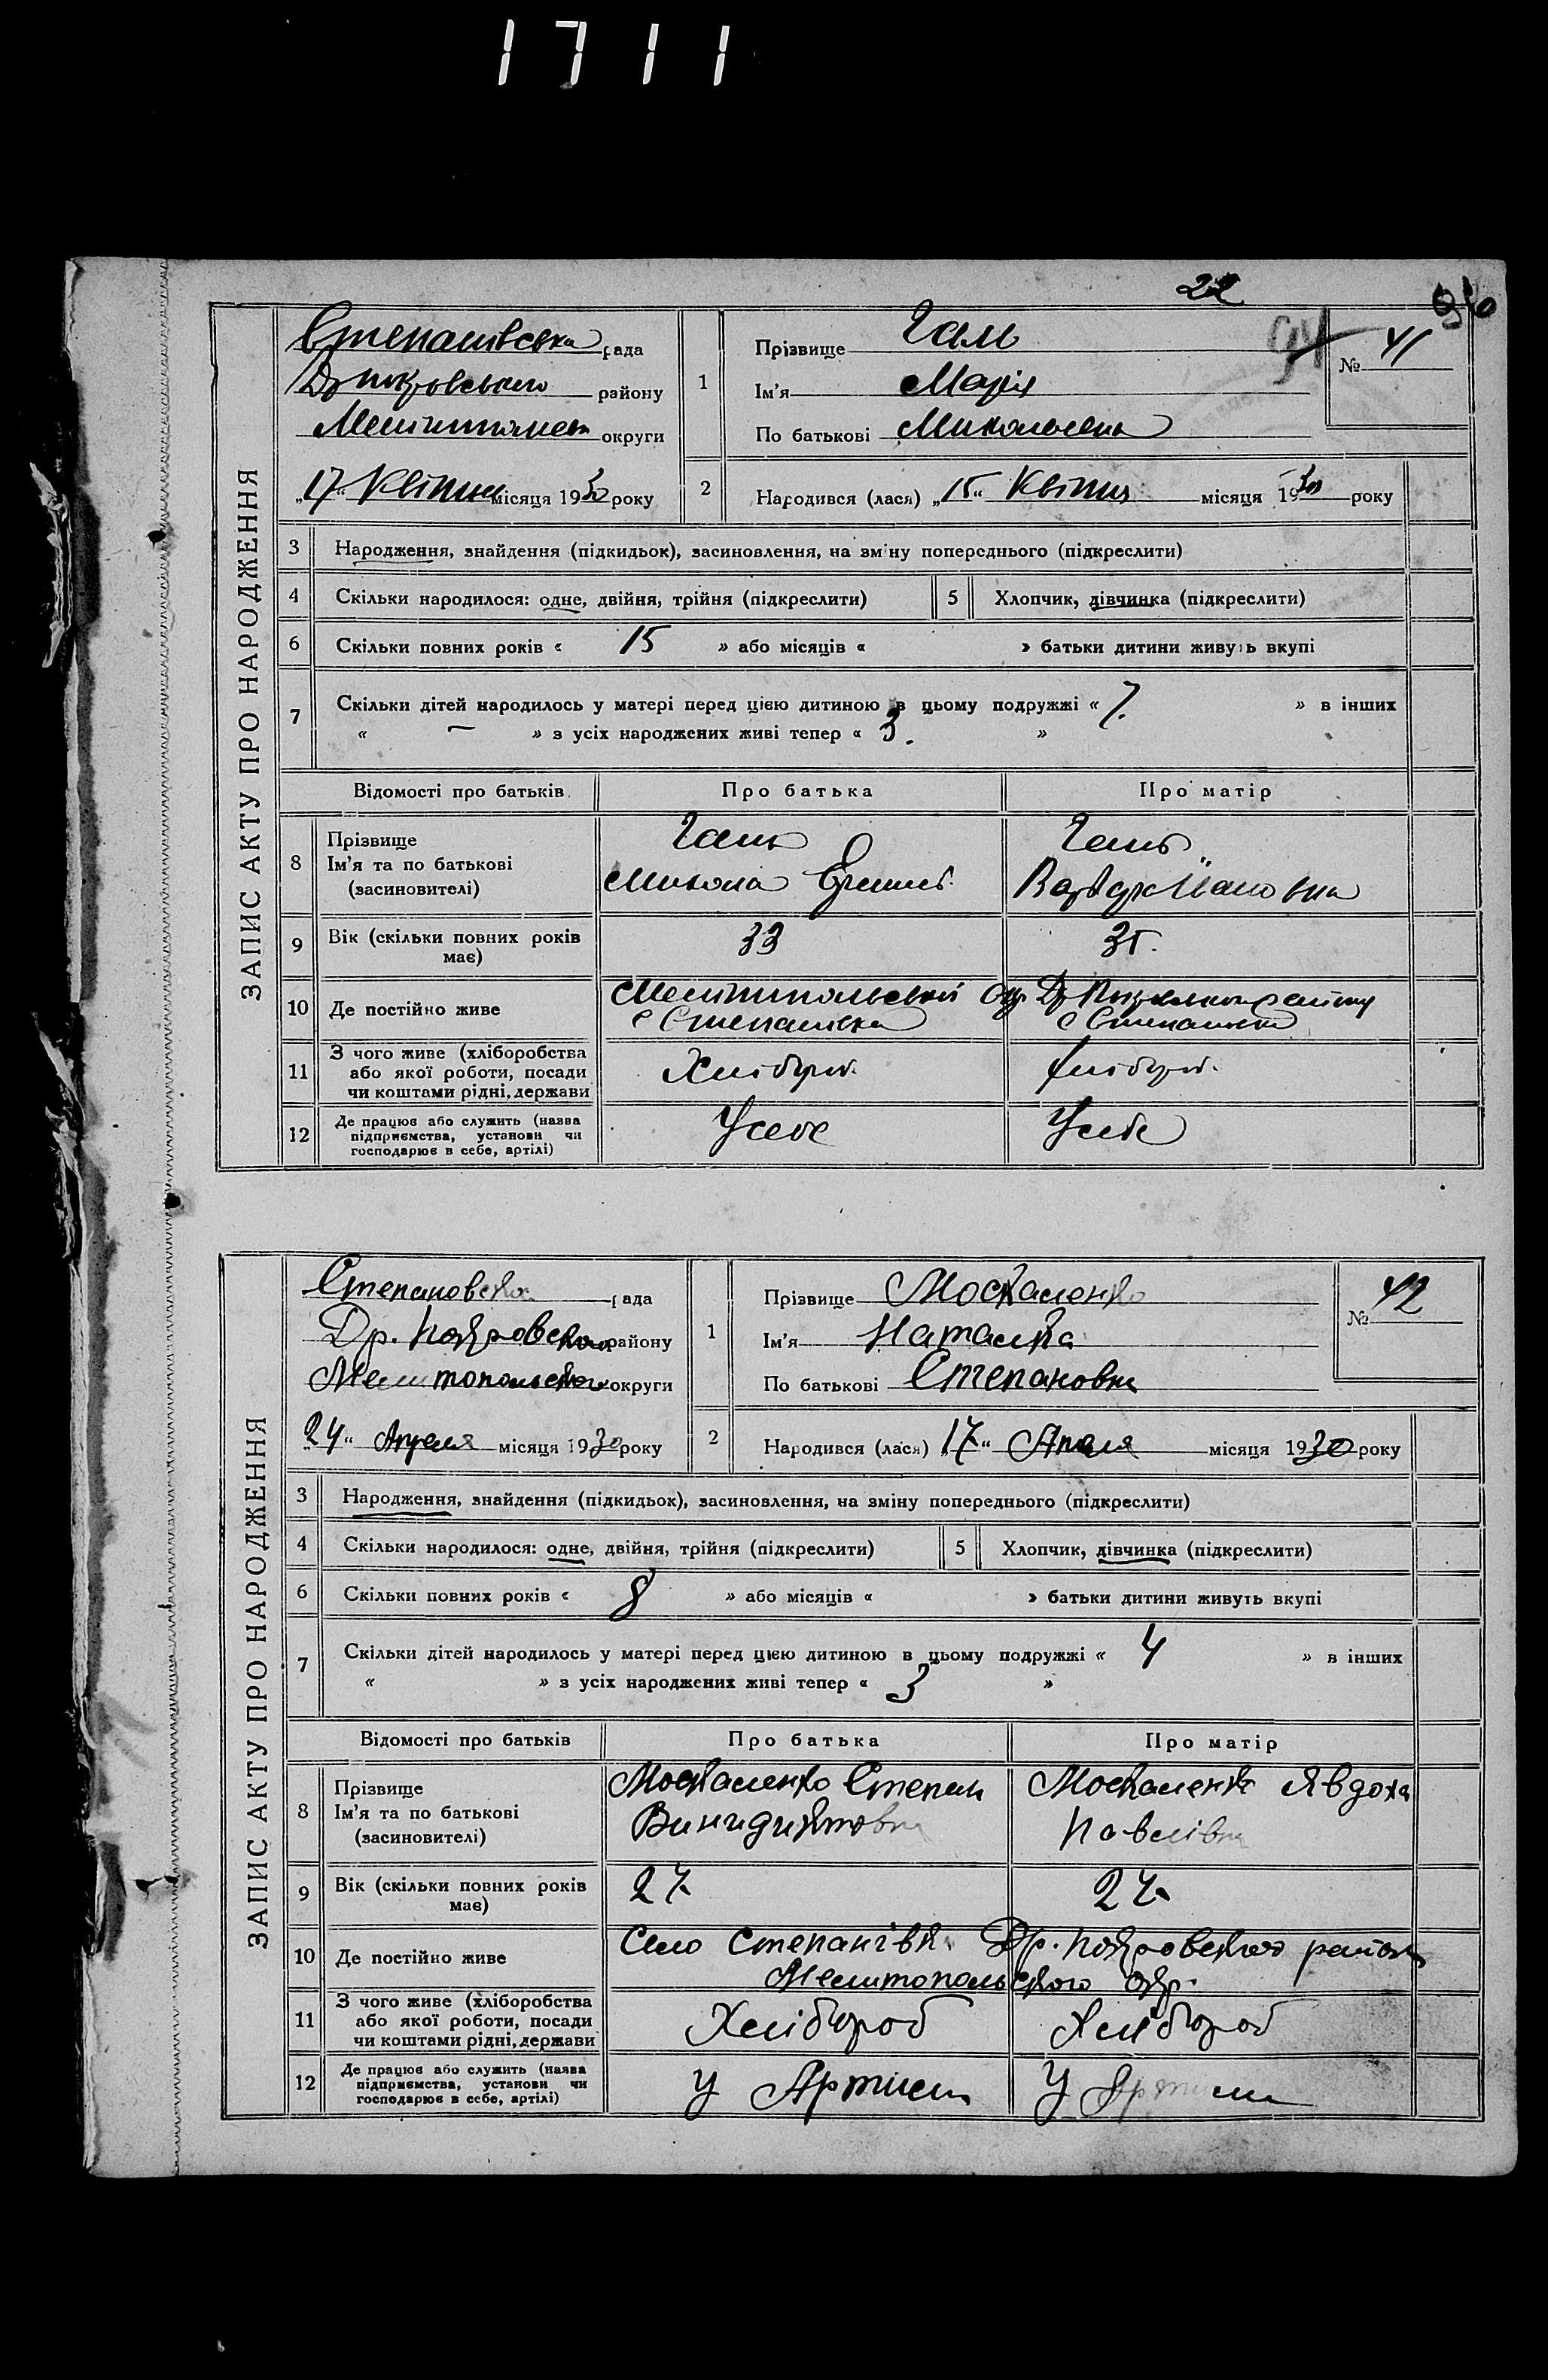 1711
22
96
94
ЗАПИС АКТУ ПРО НАРОДЖЕННЯ
Степанівська рада
району
округи
„17“ Квітня місяця 1930 року
1
Прізвище
Ім'я Марія
По батькові Миколаевна
№ 41
2
Народився (лася) „15“ Квітня місяця 1930 року
3 Народження, знайдення (підкидьок), засиновлення, на зміну попереднього (підкреслити)
4 Скільки народилося: одне, двійня, трійня (підкреслити) 5 Хлопчик, дівчинка (підкреслити)
6 Скільки повних років « 15 » або місяців « » батьки дитини живуть вкупі
7 Скільки дітей народилось у матері перед цією дитиною в цьому подружжі « 7. » в інших
« — » з усіх народжених живі тепер « 3. »
Відомості про батьків. Про батька Про матір
8 Прізвище
Ім'я та по батькові Микола
(засиновителі)
9 Вік (скільки повних років має) 33
10 Де постійно живе
с Степанівка с Степанівка
11 З чого живе (хліборобства або якої роботи, посади чи коштами рідні, держави Хлібороб. Хлібороб.
12 Де працює або служить (назва підприємства, установи чи господарює в себе, артілі) Усебе Усебе
ЗАПИС АКТУ ПРО НАРОДЖЕННЯ
Степановська рада
Др. Покровского району
Мелитопольского округи
24“ Апреля місяця 1930 року
1
Прізвище Москаленко
Ім'я Наталка
По батькові Степановна
№ 42
2
Народився (лася) „17“ Апеля місяця 1930 року
3 Народження, знайдення (підкидьох), засиновлення, на зміну попереднього (підкреслити)
4 Скільки народилося: одне, двійня, трійня (підкреслити) 5 Хлопчик, дівчинка (підкреслити)
6 Скільки повних років « 8 » або місяців « » батьки дитини живуть вкупі
7 Скільки дітей народилось у матері перед цією дитиною в цьому подружжі « 4 » в інших
« » з усіх народжених живі тепер « 3 »
Відомості про батьків Про батька Про матір
8 Прізвище Москаленко Степан Москаленко Явдоха
Ім'я та по батькові Павлівна
(засиновителі)
9 Вік (скільки повних років має) 27 27
10 Де постійно живе Село Степанівк. Др. Покровского район
Мелитопольского окр.
11 З чого живе (хліборобства або якої роботи, посади чи коштами рідні, держави Хлібороб Хлібороб
12 Де працює або служить (назва підприємства, установи чи господарює в себе, артілі) У Артили У Артили